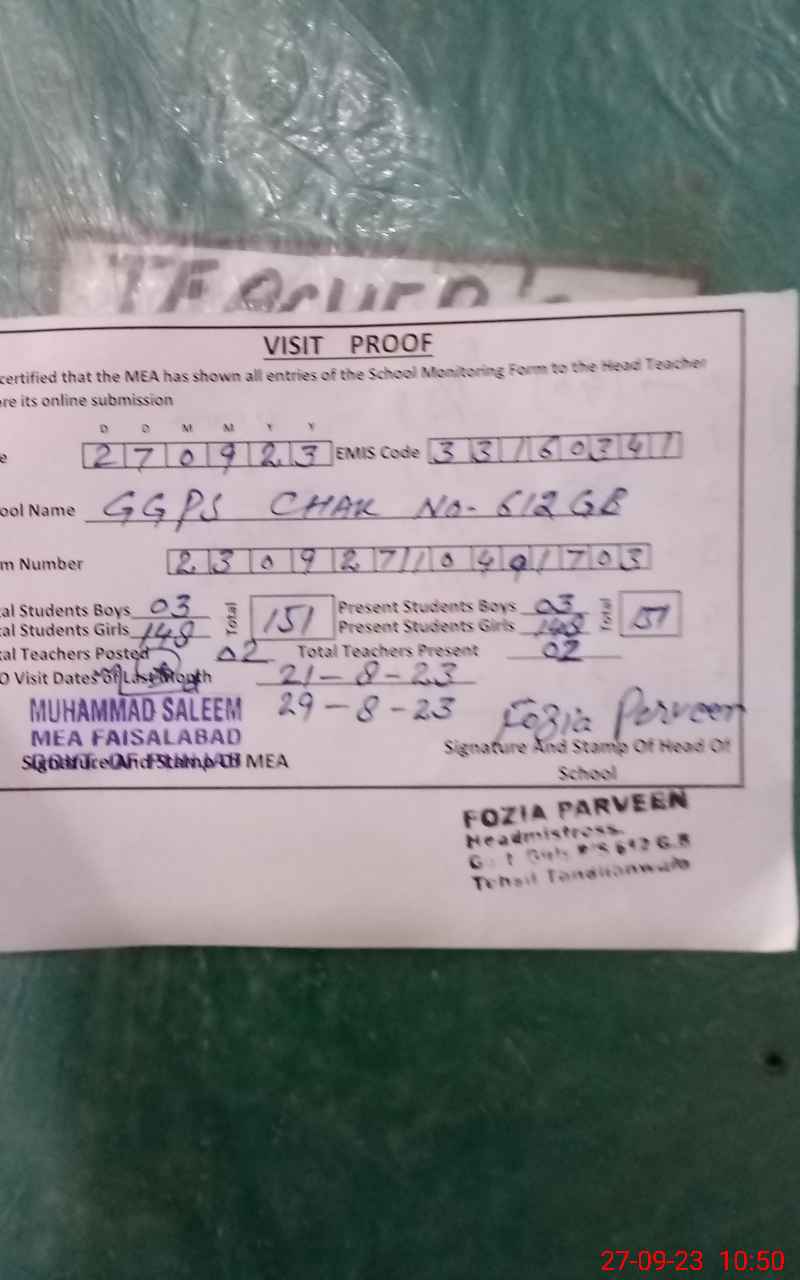 TEACHER'S
VISIT PROOF
certified that the MEA has shown all entries of the School Monitoring Form to the Head Teacher
re its online submission
D D M M Y Y
e 270923 EMIS Code 33160341
ool Name GGPS CHAK No- 612 GB
m Number
al Students Boys 03 Total 151 Present Students Boys 03 Total 151
al Students Girls 148 Present Students Girls 148
al Teachers Posted 02 Total Teachers Present 02
O Visit Dates of Last Month 21-8-23
29-8-23 Fozia Parveen
MUHAMMAD SALEEM
MEA FAISALABAD
Signature And Stamp Of MEA
Signature And Stamp Of Head Of
School
FOZIA PARVEEN
Headmistress
Girls P/S 612 G.B
Tehsil Tandlianwala
27-09-23 10:50